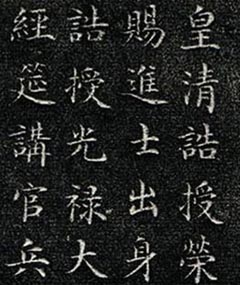 皇清誥授榮
賜進士出身
誥授光禄大
經筵講官兵